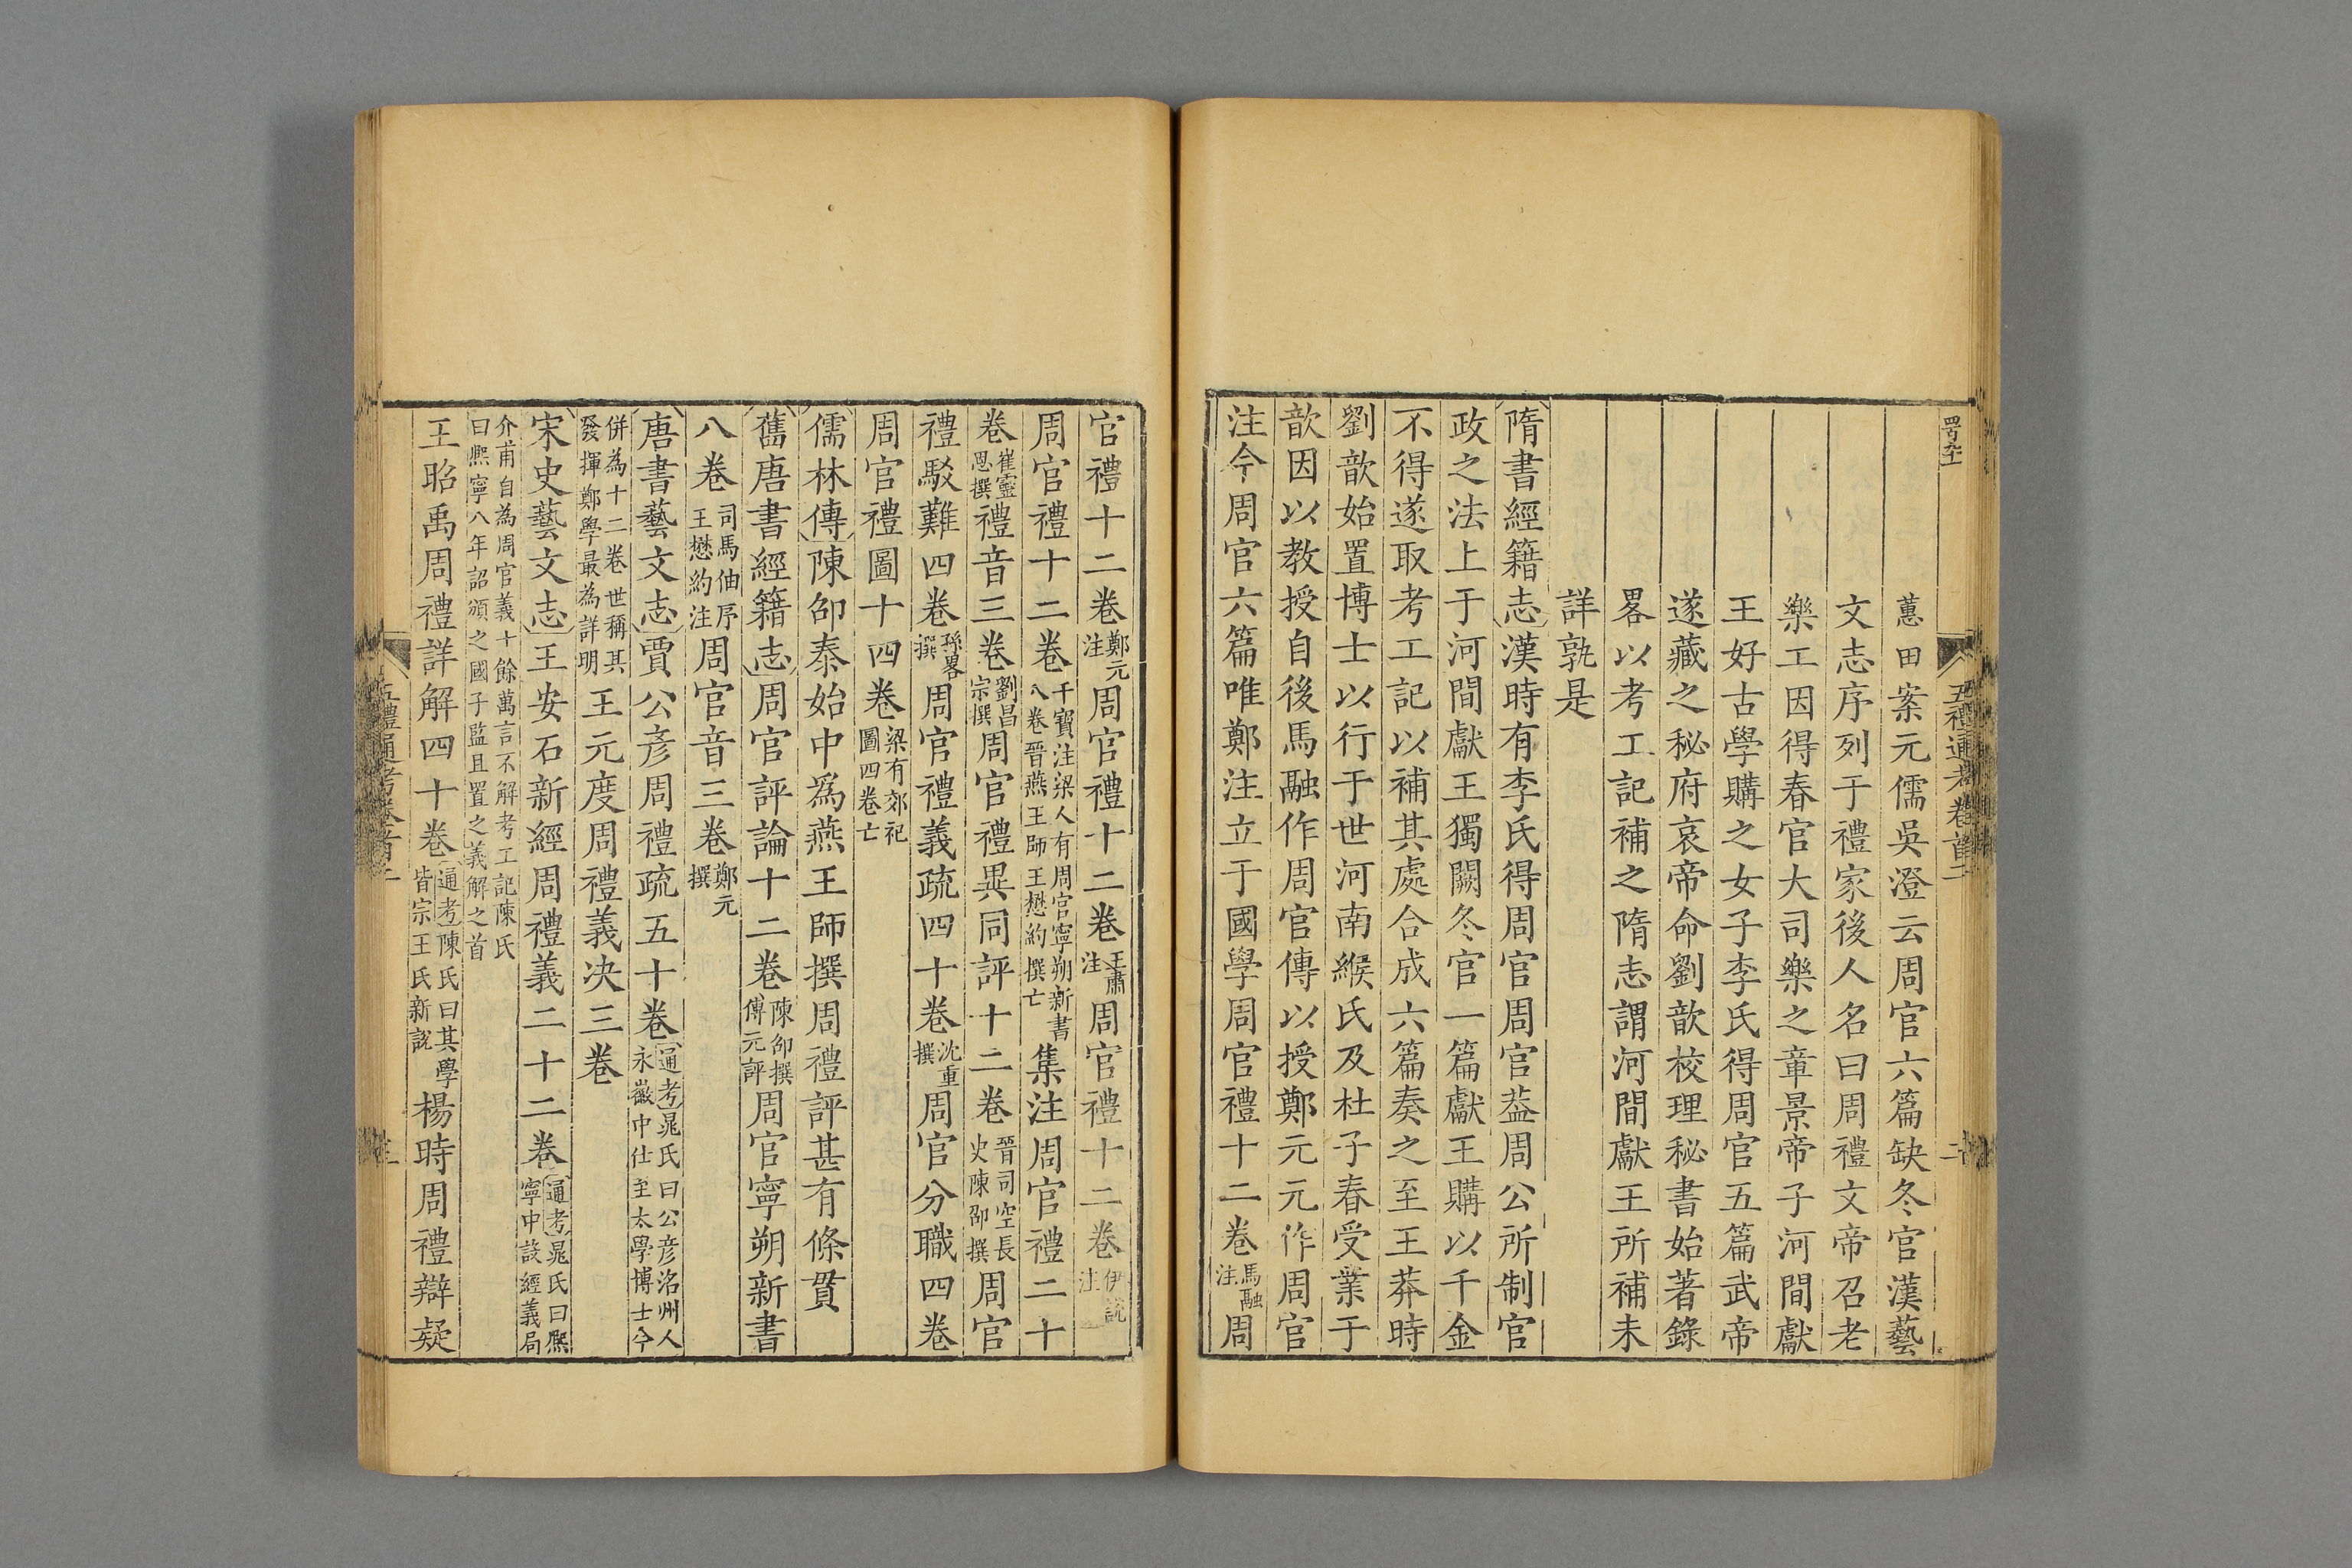 蕙田案元儒吳澄云周官六篇缺冬官漢藝
文志序列于禮家後人名曰周禮文帝召老
樂工因得春官大司樂之章景帝子河間獻
王好古學購之女子李氏得周官五篇武帝
遂藏之秘府哀帝命劉歆校理秘書始著錄
畧以考工記補之隋志謂河間獻王所補未
詳孰是
隋書經籍志漢時有李氏得周官周官葢周公所制官
政之法上于河間獻王獨闕冬官一篇獻王購以千金
不得遂取考工記以補其處合成六篇奏之至王莽時
劉歆始置博士以行于世河南緱氏及杜子春受業于
歆因以教授自後馬融作周官傳以授鄭元元作周官
注今周官六篇唯鄭注立于國學周官禮十二卷馬融注周
官禮十二卷鄭元注周官禮十二卷王肅注周官禮十二卷伊說注
周官禮十二卷干寶注梁人有周官寧朔新書八卷晉燕王師王懋約撰亡集注周官禮二十
卷崔靈恩撰禮音三卷劉昌宗撰周官禮異同評十二卷晉司空長史陳邵撰周官
禮駁難四卷孫畧撰周官禮義疏四十卷沈重撰周官分職四卷
周官禮圖十四卷梁有郊祀圖四卷亡
儒林傳陳邵泰始中爲燕王師撰周禮評甚有條貫
舊唐書經籍志周官評論十二卷陳邵撰傅元評周官寧朔新書
八卷司馬伷序王懋約注周官音三卷鄭元撰
唐書藝文志賈公彦周禮疏五十卷通考晁氏曰公彦洛州人永徽中仕至太學博士今
併為十二卷世稱其發揮鄭學最為詳明王元度周禮義决三卷
宋史藝文志王安石新經周禮義二十二卷通考晁氏曰熈寧中設經義局
介甫自為周官義十餘萬言不解考工記陳氏曰熈寧八年詔頒之國子監且置之義解之首
王昭禹周禮詳解四十卷通考陳氏曰其學皆宗王氏新說楊時周禮辯疑
五禮通考卷首二